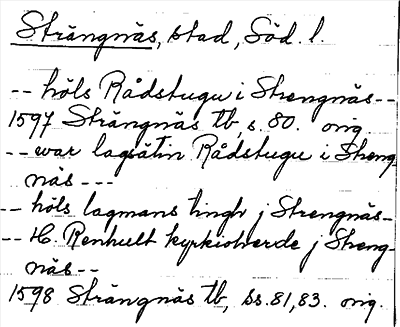 Strängnäs, stad, Söd. l.
-- höls Rådstugu i Strengnäs --
1597 Strängnäs tb, s. 80. orig.
-- war lagsätin Rådstugu i Streng-
näs ---
-- höls lagmans tingh j Strengnäs -
-- H. Renhult kyrkioherde j Streng-
näs --
1598 Strängnäs tb, ss. 81, 83. orig.